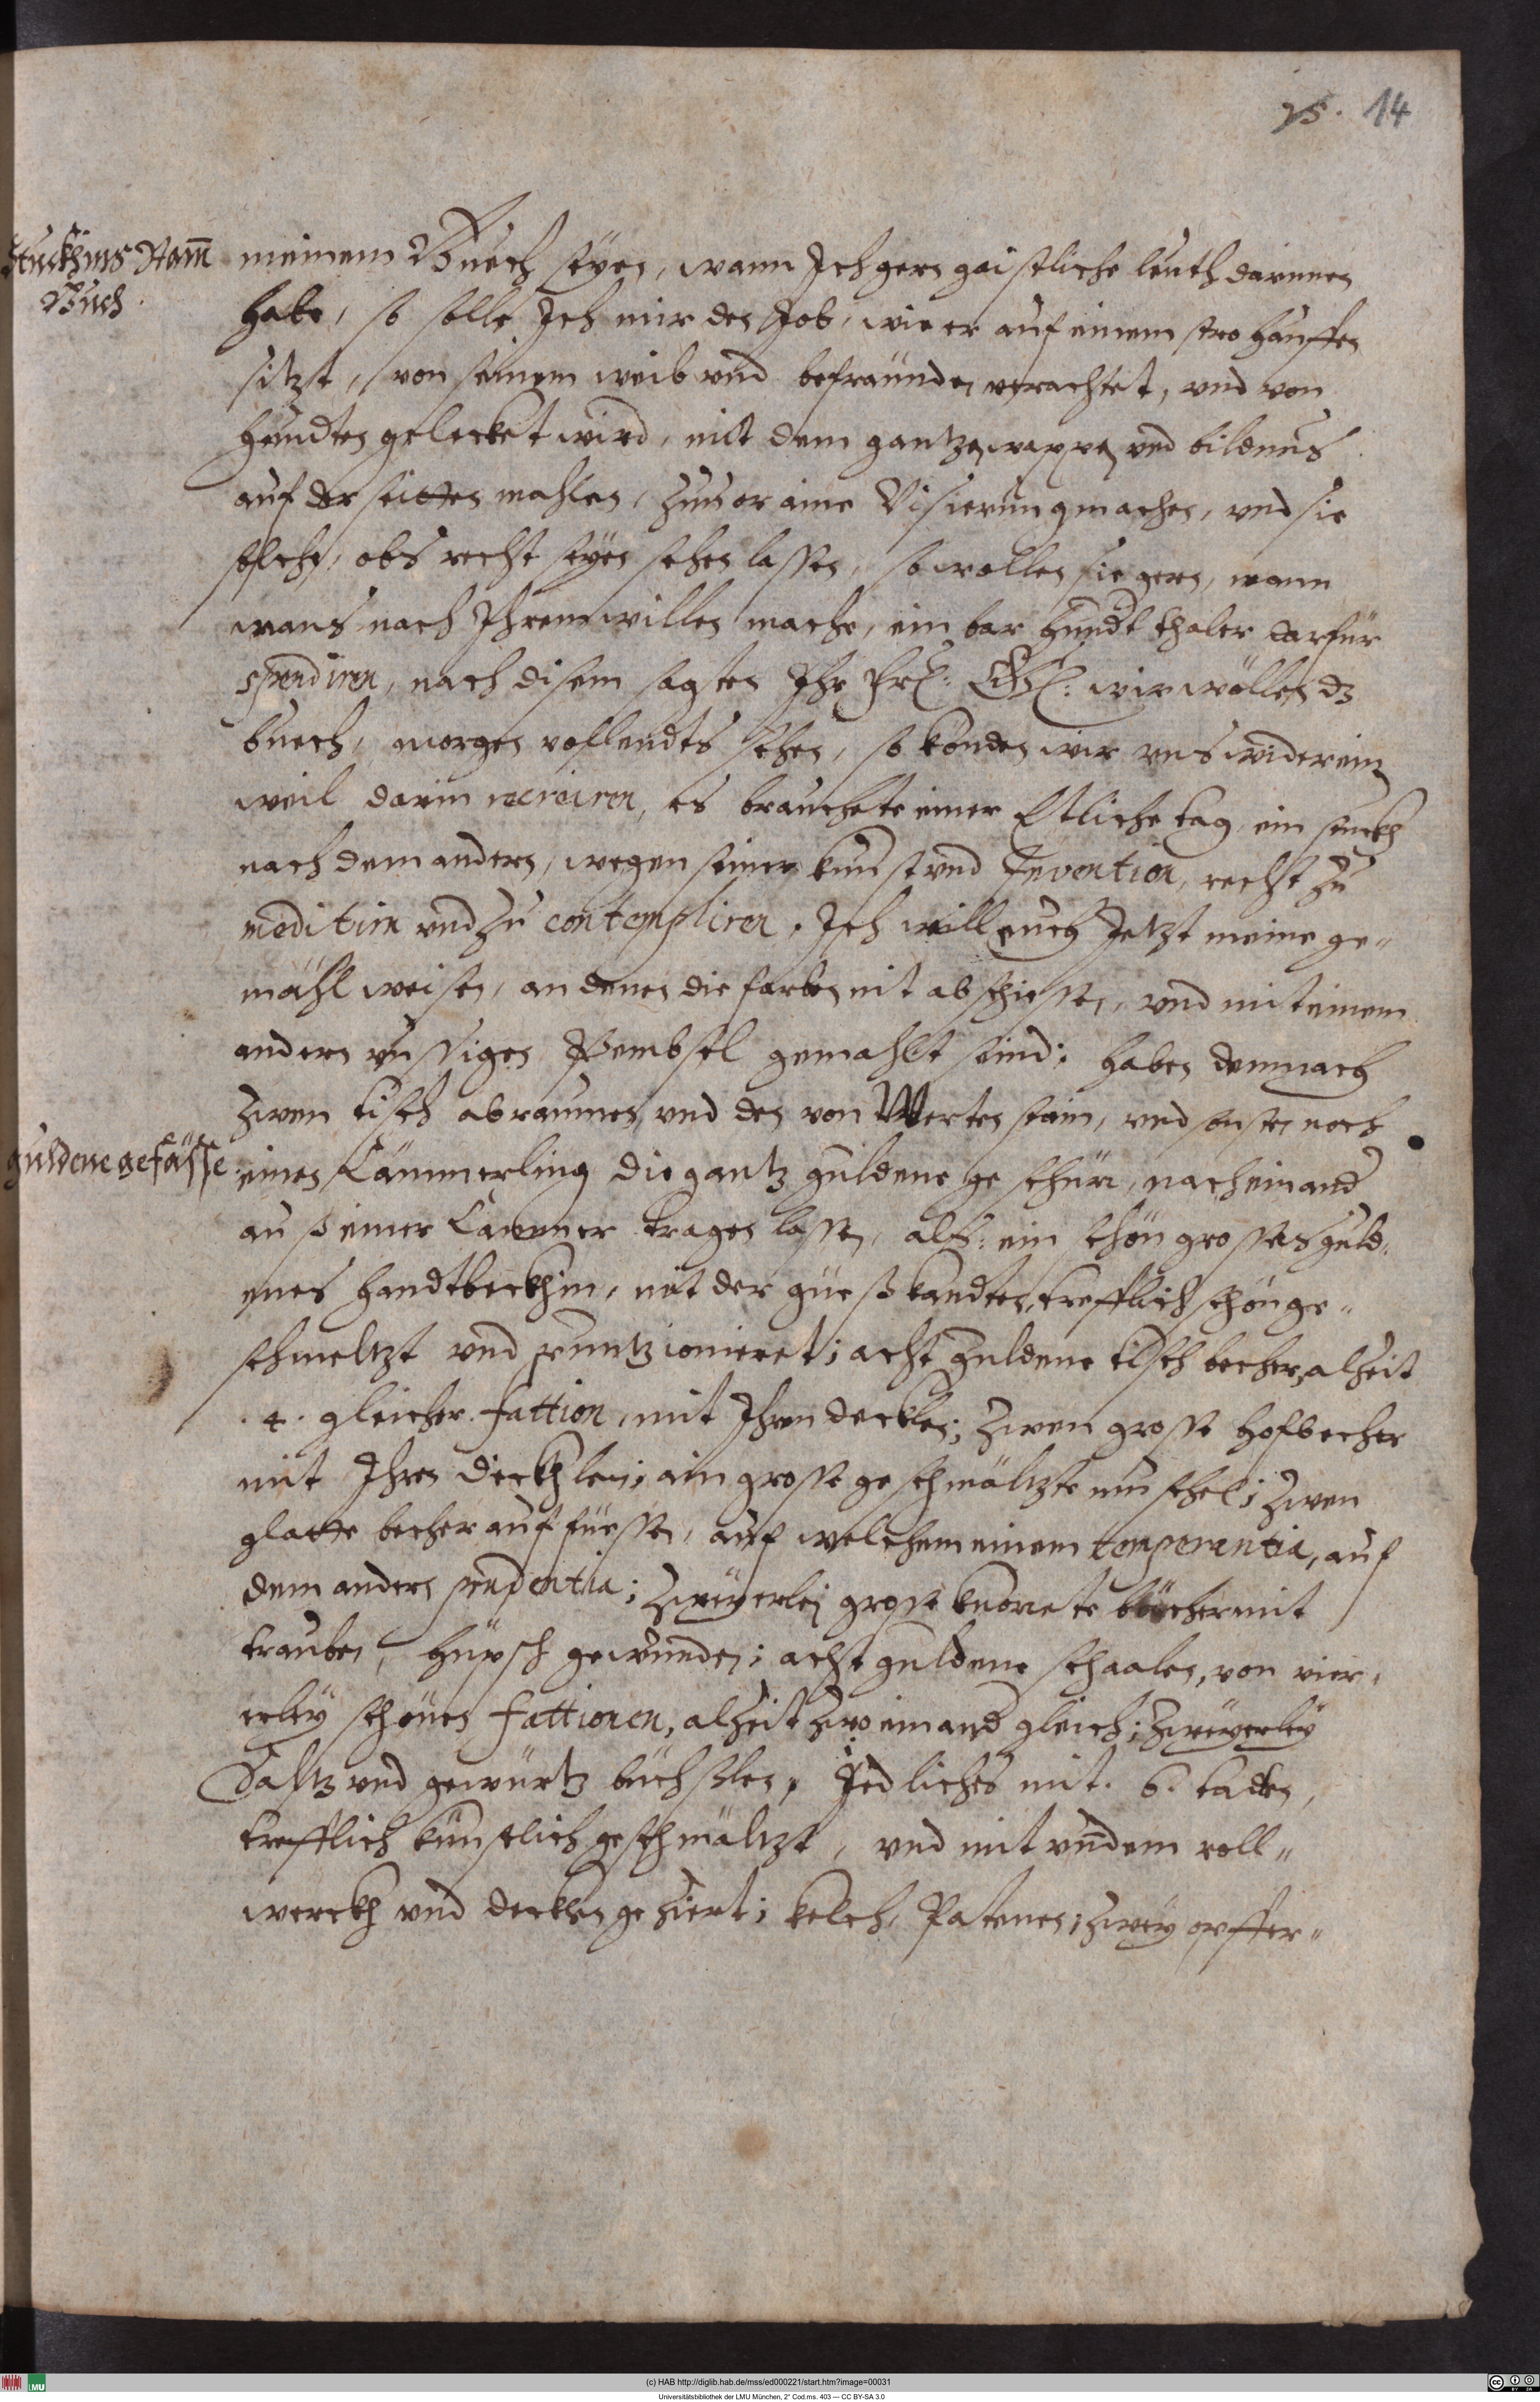 25. 14
Stuckhins Stam̄
Buch.
meinem Buech seyen, wann Ich gern gaistliche leuth darinnen
habe, so solle Ich mir den Job, wie er auf einem stro hauffen
sitzt, von seinem weib und befraundten verachtet, und von
hundten gelecket wird, mit dem gantzen wappen und bildnus
auf der seitten mahlen, zuuor aine Visierung machen, und sie
solche, obs recht seyen sehen lassen, so wollen sie gern, wann
mans nach Ihrem willen mache, ein bar hundt thaler darfür
spendiren, nach disem sagten Ihr Frl: Gl: wir wöllen dz
buech, morgen vollendts sehen, so könden wir uns wider ein
weil darin recreiren, es brauchete einer Etliche tag ein stuckh
nach dem andern, wegen seiner kunst und Invention, recht zu
meditirn und zu contempliren. Ich will euch Jetzt meine ge„
mähl weisen, an denen die farben nit abschiessen, und mit einem
andern russigen Pembsel gemahlt seind: haben demnach
zwen tisch abraumen, und den von Wertenstain, und sonsten noch
guldene gefässe
einen Cämmerling die gantz guldene geschürr, nach einand
auß einer Cammer tragen lassen, als: ein schön grosses guld„
enes handtbeckhin, mit der güeßkandten, trefflich schön ge„
schmeltzt und puntzionieret; acht guldene tisch becher, alzeit
.4. gleicher fattion, mit Ihren decklen; zwen grosse hofbecher
mit Ihren deckhlen; ain grosse geschmältzte muschel; zwen
glatte becher auf füessen, auf welchem einem temperantia, auf
dem andern prudentia; zweyerlej grosse knorrete becher mit
trauben, hüpsch gewunden; acht guldene schaalen, von vier„
erley schönen fattionen, alzeit zwo einand gleich; zweyerley
Saltz und gewürtz büchßlen, Jedliches mit .6. laden,
trefflich künstlich geschmältzt, und mit rundem roll„
werckh und decklen geziert; kelch, Patenen; zwey opffer„
(c) HAB http://diglib.hab.de/mss/ed000221/start.htm?image=00031
Universitätsbibliothek der LMU München, 2° Cod.ms. 403 — CC BY-SA 3.0